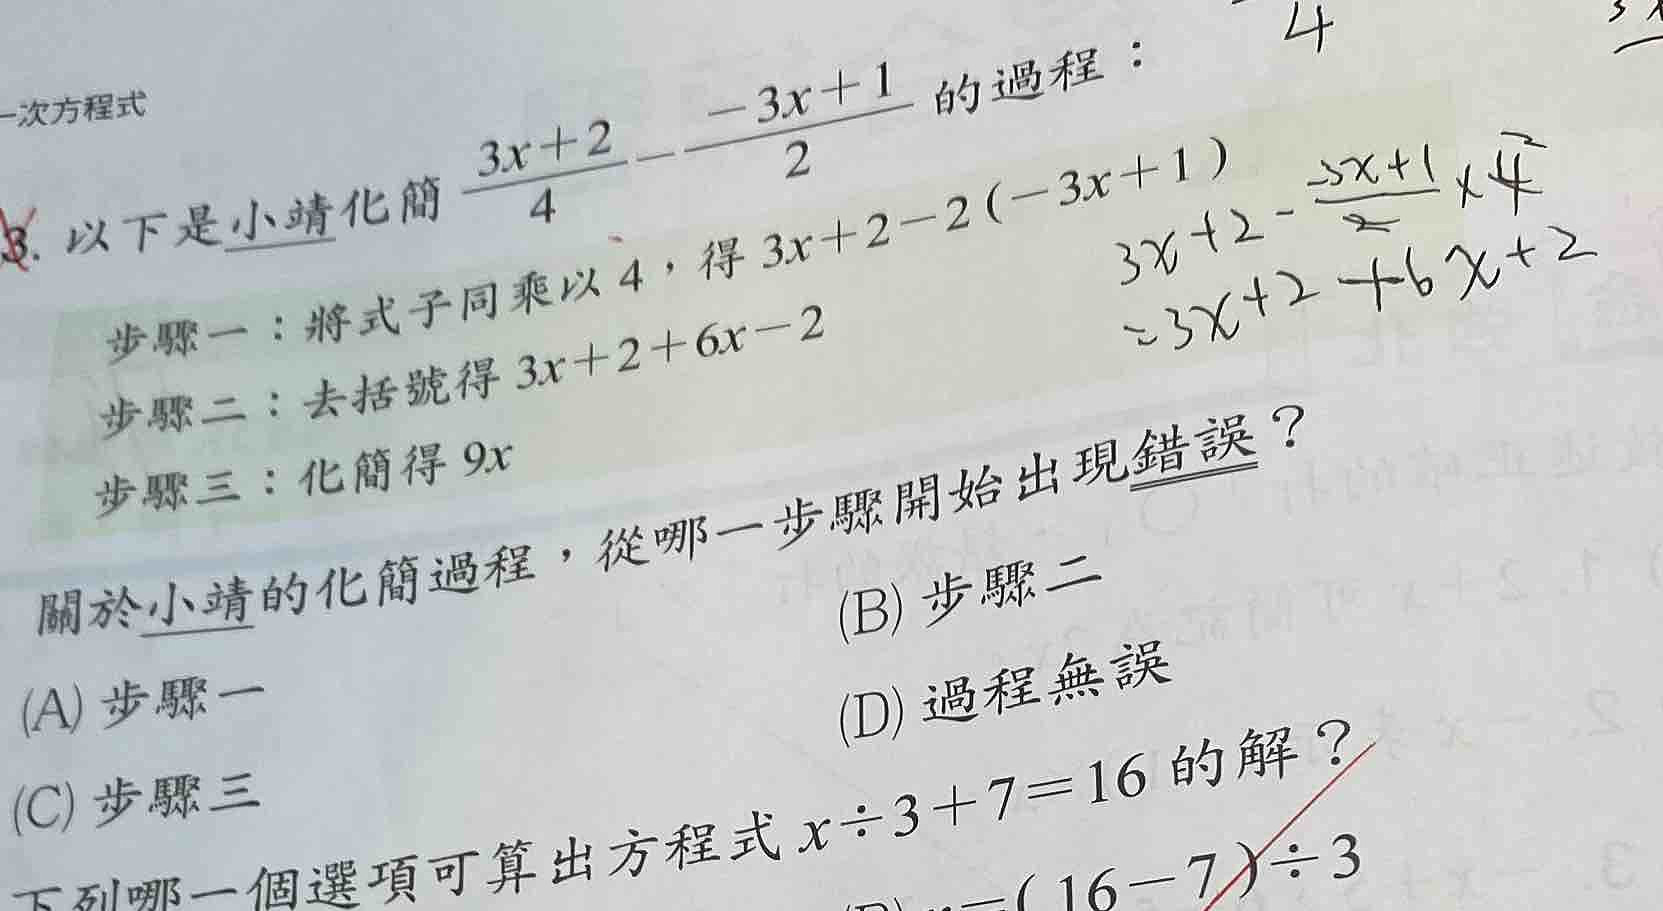 一次方程式
4
3. 以下是小靖化簡 (3x+2)/4 - (-3x+1)/2 的過程：
步驟一：將式子同乘以 4，得 3x+2-2(-3x+1)
步驟二：去括號得 3x+2+6x-2
步驟三：化簡得 9x
3x+2 - (-3x+1)/2 × 4 2
=3x+2+6x+2
關於小靖的化簡過程，從哪一步驟開始出現錯誤？
(A) 步驟一
(B) 步驟二
(C) 步驟三
(D) 過程無誤
下列哪一個選項可算出方程式 x÷3+7=16 的解？
(16-7)÷3